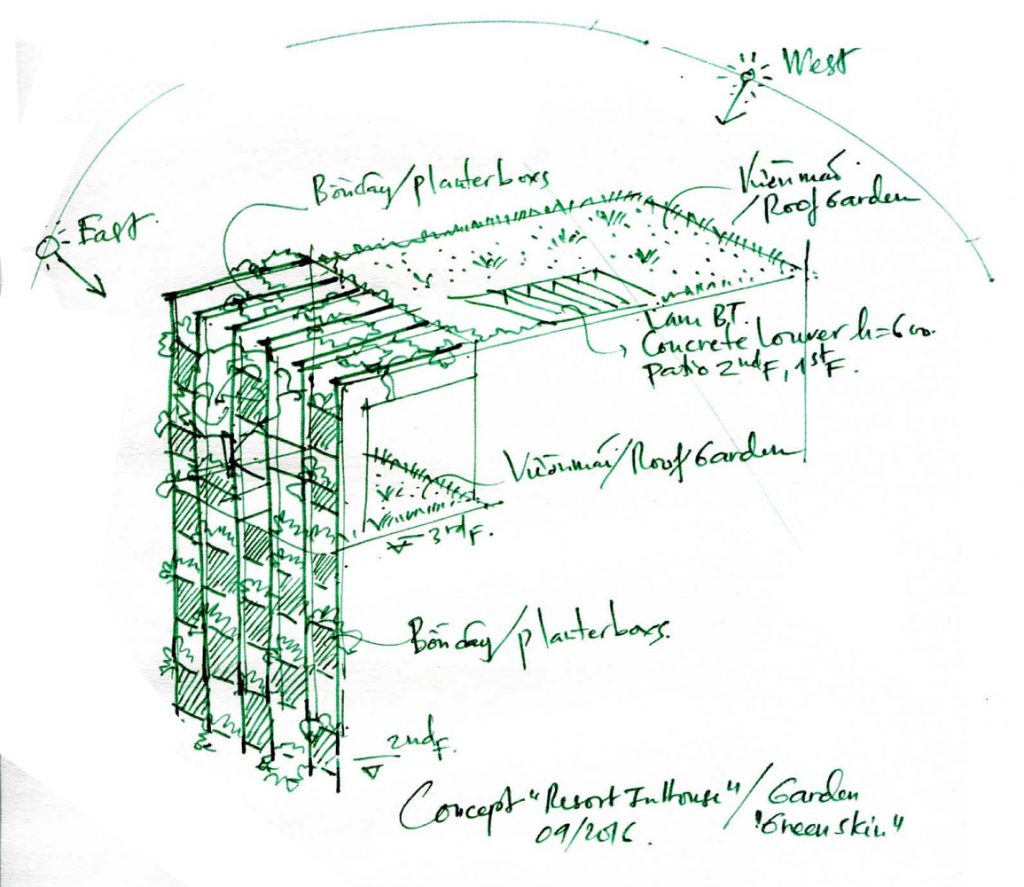 West
East
Bồn cây/planterboxs
Vườn mái
/Roof Garden
Lam B.T.
Concrete Louver h=600.
patio 2nd F, 1st F.
Vườn mái/Roof Garden
3rd F.
Bồn cây/planterboxs.
2nd F.
Concept "Resort In House"/ Garden
09/2016. "Green skin"